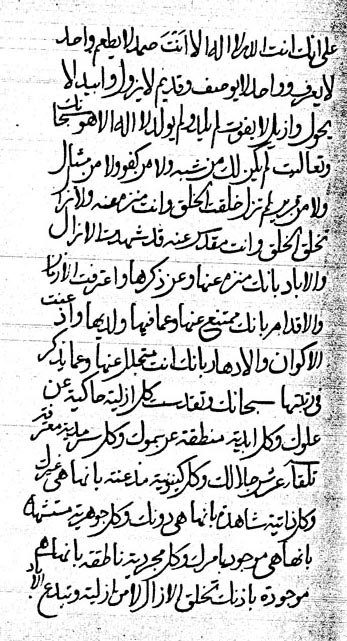 على انك انت الله لا اله الا انت صمد لا يطعم واحد
لا يعرف وواحد لا يوصف وقديم لا يزول وابد لا
يحول وازل لا يفوت لم يلد ولم يولد لا اله الا هو سبحانك
وتعاليت لم يكن لك من شبه ولا من كفو ولا من مثال
ولا من لم تزل خلقت الخلق وانت منزه عنه ولا تزال
تخلق الخلق وانت مقدس عنه قد شهدت الازال
والاباد بانك منزه عنها وعن ذكرها واعترفت الازمان
والاقدام بانك ممتنع عنها وعما فيها ولديها واذعنت
الاكوان والادهار بانك انت متجلل عنها وعما يذكر
في رتبتها سبحانك وتقدست كل ازلية حاكية عن
علوك وكل ابدية منطقة عن سموك وكل سرمدية معرفة
تلقاء عز جلالك وكل كينونية مذعنة بانها هي غيرك
وكل ذاتية شاهدة بانها هي دونك وكل جوهرية
بانها هي موجود بامرك وكل مجردية ناطقة بانها هي
موجودة باذنك تخلق الازال لا من ازلية وتبدع الاباد